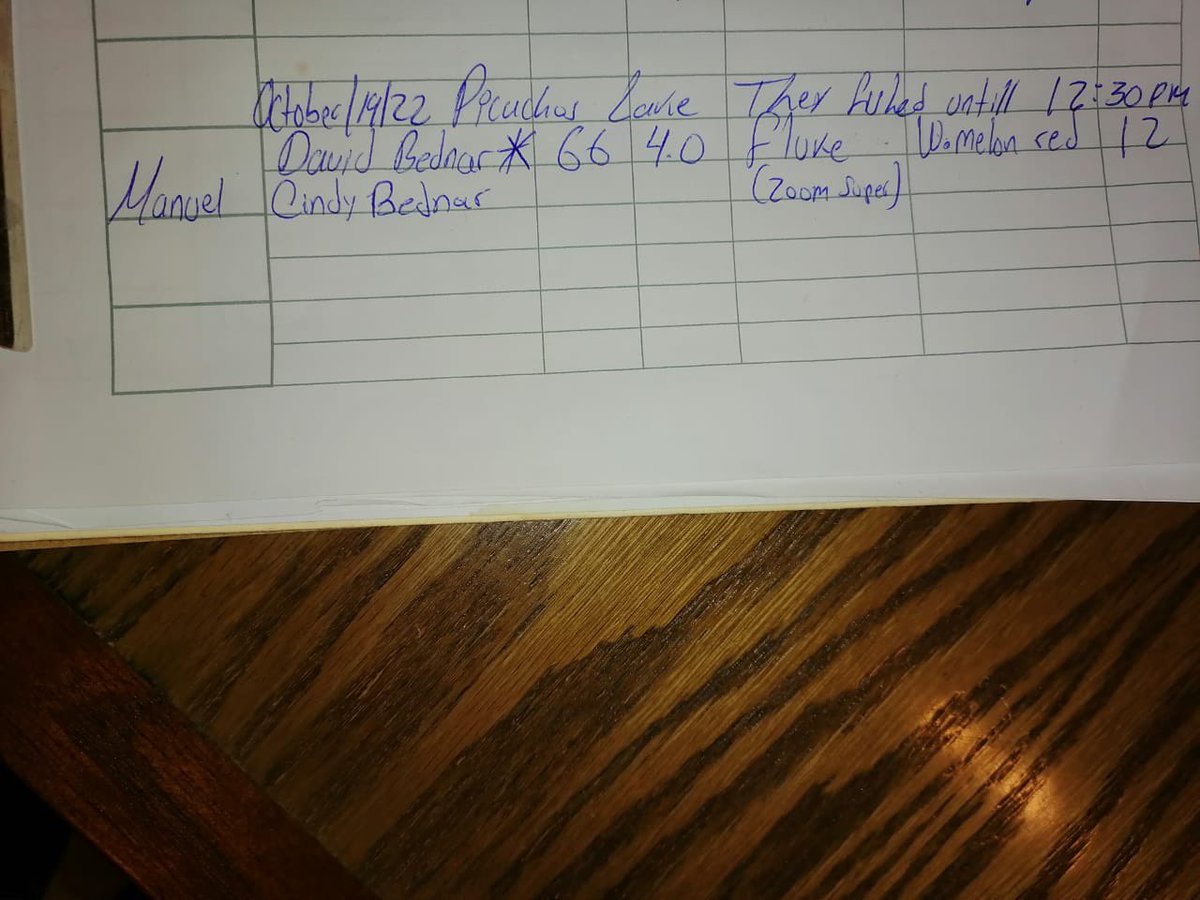 October/19/22 Picuchas Lake They fished untill 12:30 PM
David Bednar* 66 4.0 Fluke W.melon red 12
Manuel Cindy Bednar (Zoom Super)